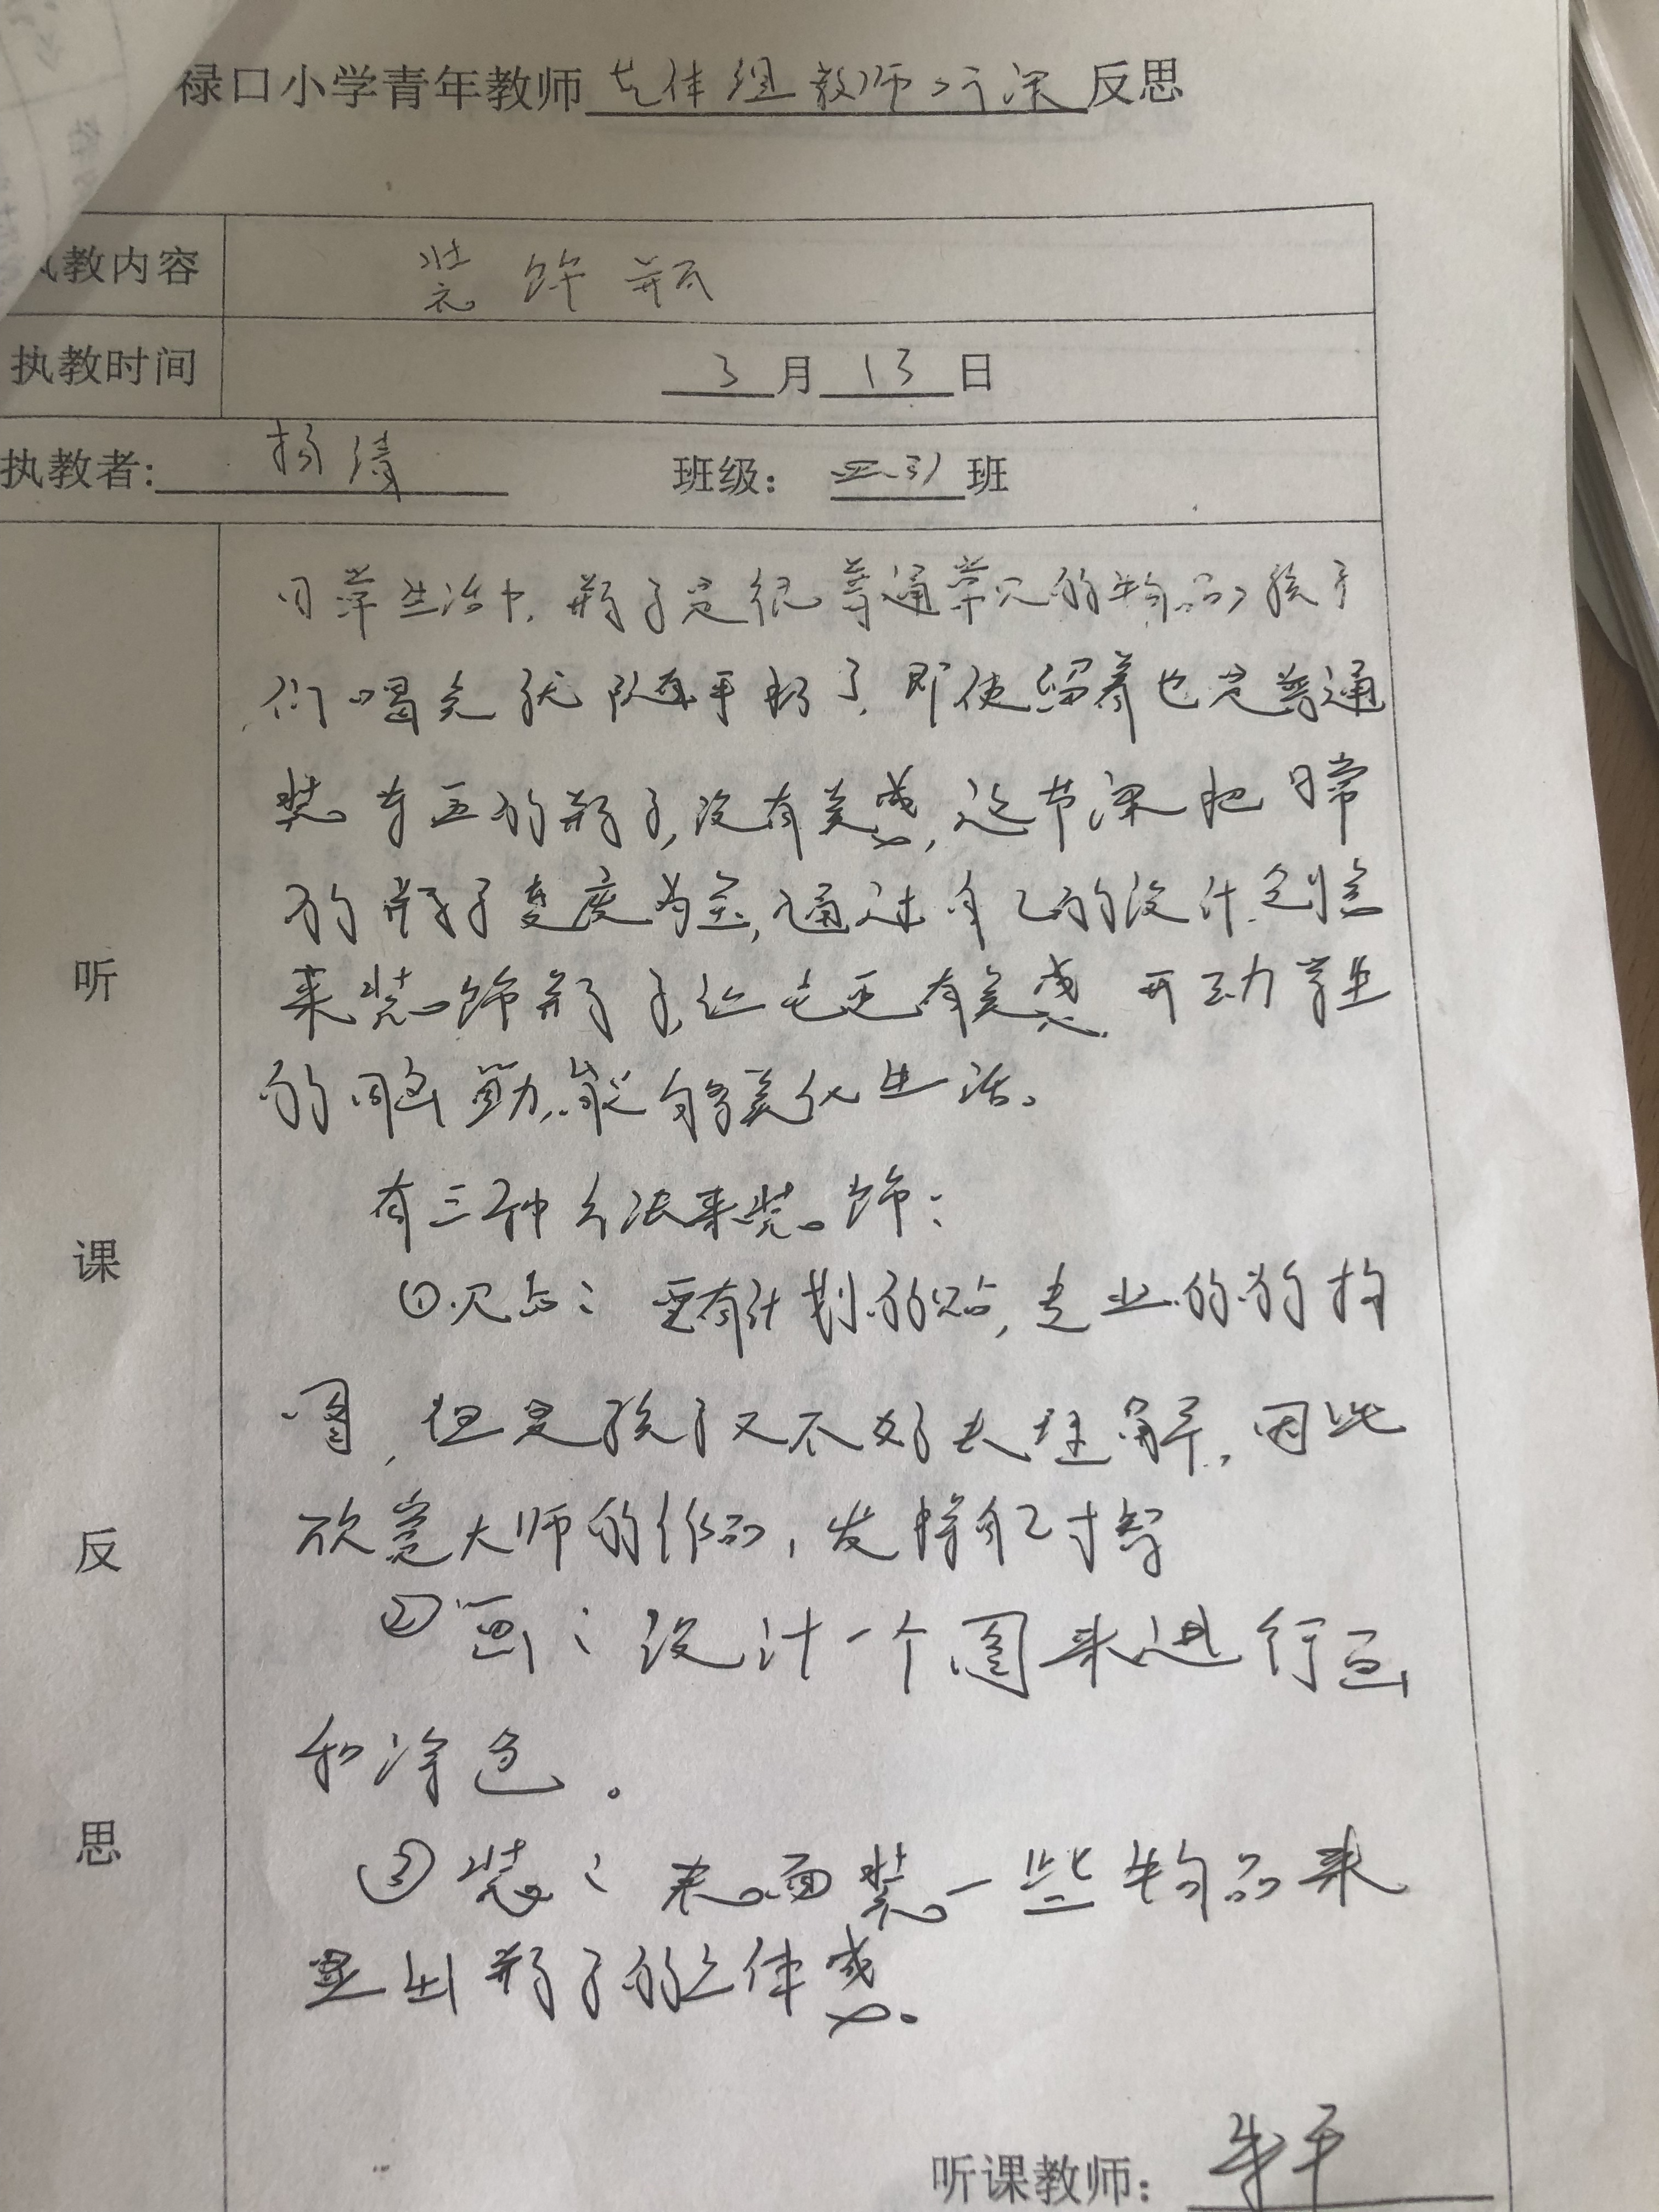 禄口小学青年教师艺体组教师听课反思
执教内容 装饰瓶
执教时间 3月13日
执教者: 杨倩 班级: 班
听课反思
日常生活中,瓶子是很普通常见的物品,孩子
们喝完就随手扔了,即使留着也是普通
装东西的瓶子,没有美感,这节课把日常
的瓶子变废为宝,通过自己的设计.创意
来装饰瓶子,让它更有美感,开动学生
的脑筋,能够美化生活。
有三种方法来装饰:
①贴:要有计划的贴,专业的的构
图,但是孩子又不好去理解,因此
欣赏大师的作品,发挥自己才智
②画:设计一个图来进行画
和涂色。
③装:表面装一些物品来
显出瓶子的立体感。
听课教师: